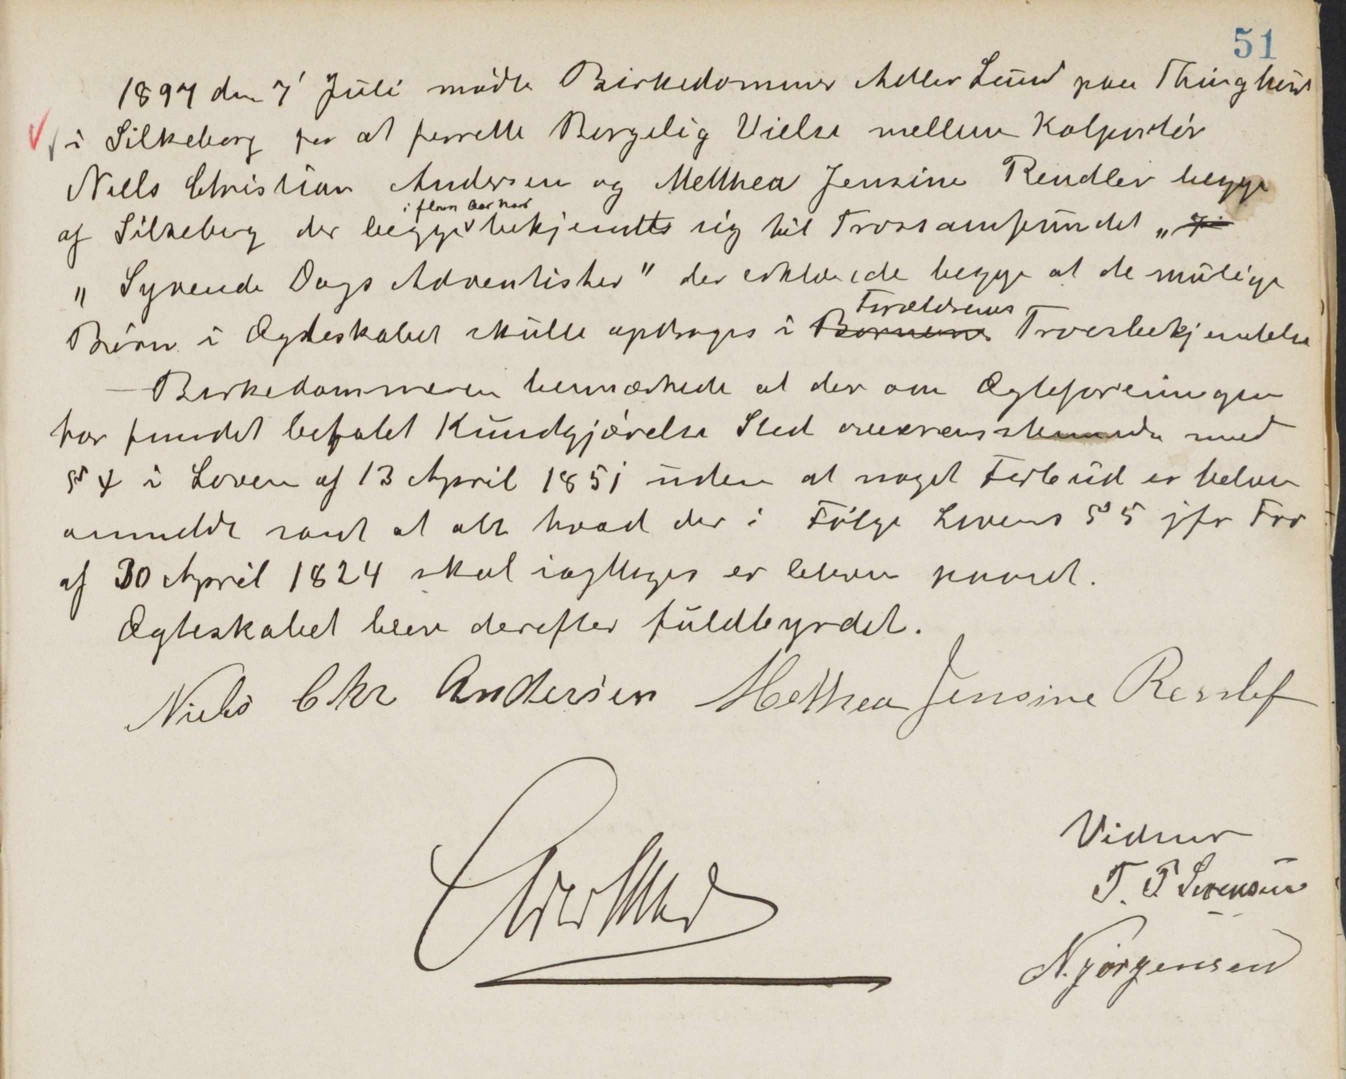 51
1897 den 7' Juli mødte Birkedommer Adler Lund paa Thinghuset
i Silkeborg for at forrette Borgelig Vielse mellem Kolportør
Niels Christian Andersen og Metthea Jensine Rendlev begge
i flere Aar har
af Silkeborg der begge bekjendte sig til Trossamfundet „
„ Syvende Dags Adventister" der erklærede begge at de mulige
Forældrenes
Børn i Ægteskabet skulle opdrages i Børnenes Troesbekjendelse
— Birkedommeren bemærkede at der om Ægteforeningen
har fundet befalet Kundgjørelse Sted overensstemmende med
§ 4 i Loven af 13 April 1851 uden at noget Forbud er bleven
anmeldt samt at alt hvad der i Følge Lovens § 5 jfr For
af 30 April 1824 skal iagttages er bleven paaset.
Ægteskabet blev derefter fuldbyrdet.
Niels Chr Andersen Metthea Jensine Renslef
Adler Lund
Vidner
T. P Sørensen
N. Jørgensen